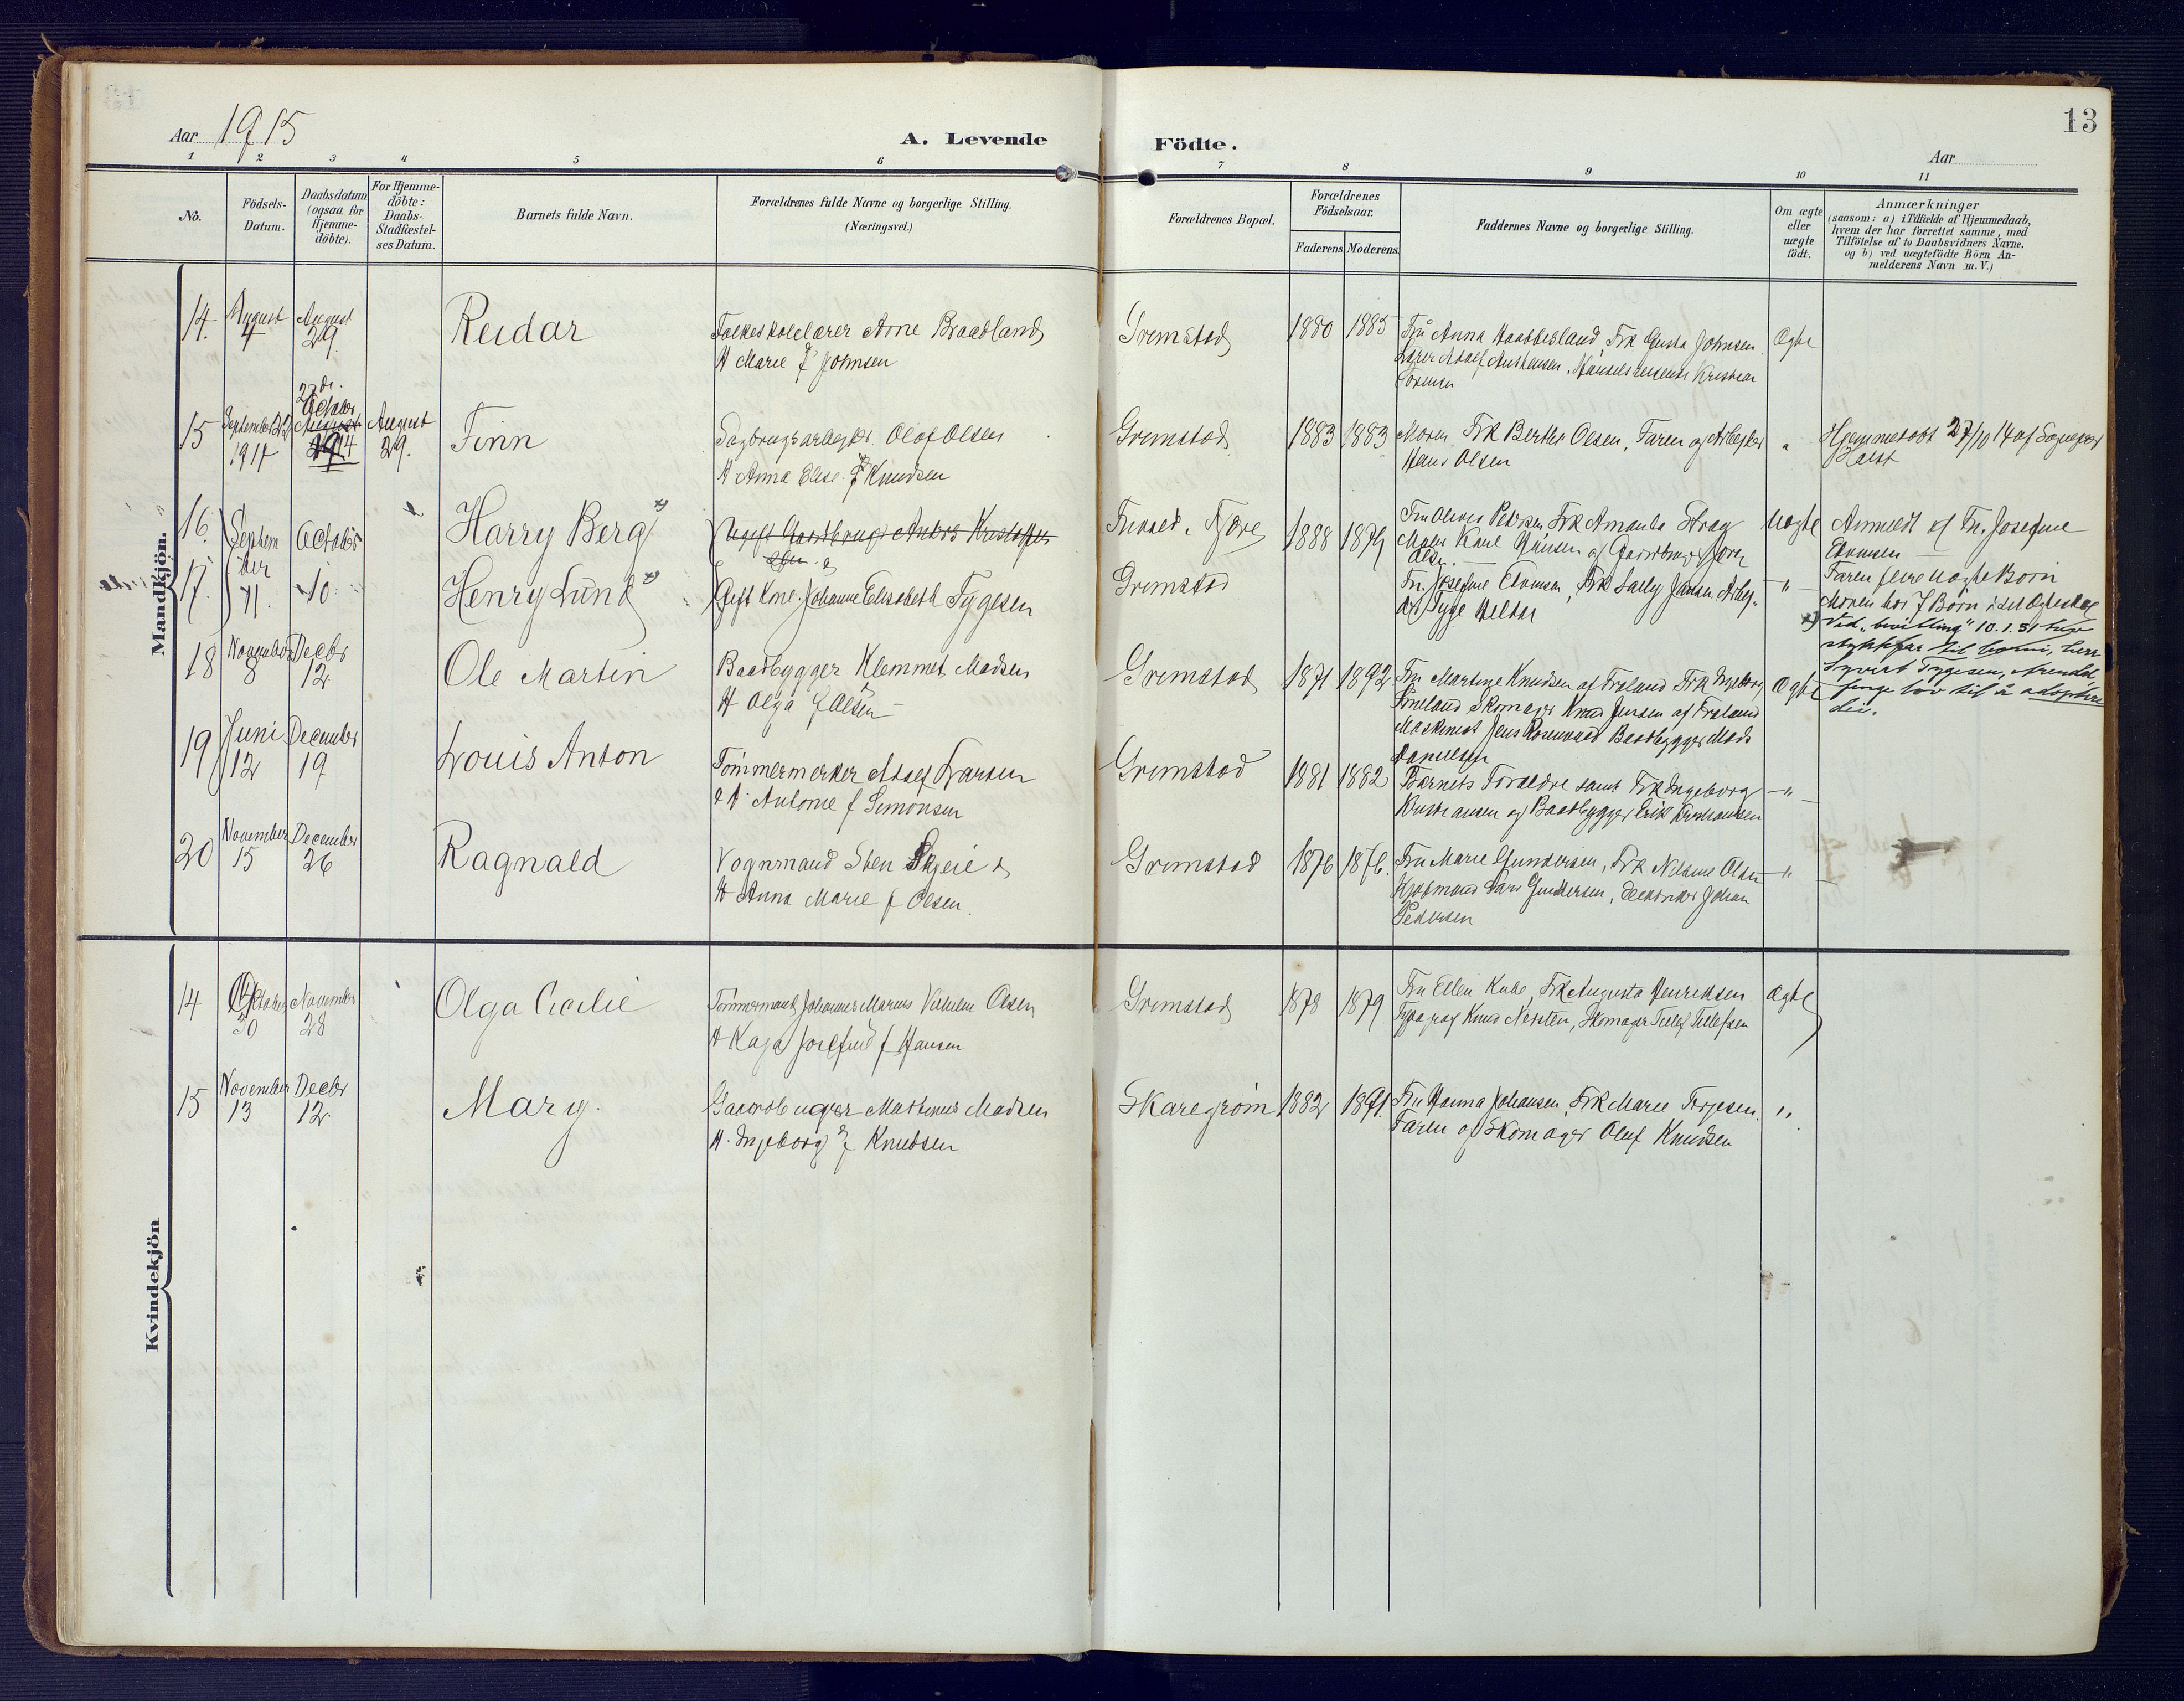 13
Aar 1915
A. Levende
Födte.
Aar
1 2 3 4 5 6 7 8 9 10 11
No.
Födsels-
Datum.
Daabsdatum
(ogsaa for
Hjemme-
döbte).
For Hjemme-
döbte:
Daabs-
Stadfæstel-
ses Datum.
Barnets fulde Navn.
Forældrenes fulde Navne og borgerlige Stilling.
(Næringsvei.)
Forældrenes Bopæl.
Forældrenes
Födselsaar.
Faderens
Moderens.
Faddernes Navne og borgerlige Stilling.
Om ægte
eller
uægte
födt.
Anmærkninger
(saasom: a) i Tilfælde af Hjemmedaab,
hvem der har forrettet samme, med
Tilföielse af to Daabsvidners Navne.
og b) ved uægtefödte Börn An-
melderens Navn m. V.)
Mandkjön.
14.
August
4
August
29
Reidar
Folkeskolelærer Arne Braadland
H Marie f Johnsen
Grimstad
1880
1885
Fru Anna Frk Gusta Johnsen
Lærer Adolf Handelsreisende Kristian
Ægte
15
September 22
1914
27de
October
August
29 14
August
29.
Finn
Sagbrugsarbejder Olaf Olsen
H Anna Elise f Knudsen
Grimstad
1883
1883
Moren, Frk Berthe Olsen, Faren og Arbejder
Hans Olsen
"
Hjemmedöbt 27/10 14 af Sogneprest
Holst
16.
Septem
ber
11.
October
10
Harry Berg x)
Ugift Gaardbruger Anders Kristoffer
sen &
Fjære
1888
1879
Fru Olene Pedersen Frk Amanda
Maler Karl Hansen og Gaardbruger
Olsen
Uægte
Anmeldt af Fru Josefine
Evensen
17.
Henry Lund x)
Gift Kone Johanne Elisabeth Tygesen
Grimstad
Fru Josefine Evensen, Frk Sally Jansen, Arbej-
der Tyge
"
Faren flere uægte Börn
Moren har 7 Börn i det Ægteskab
x) Ved "bevilling" 10.1.31 har
stykkfar til borni, herr
Syvert Tygesen, Arendal,
fenge lov til å adoptere
dei.
18
November
8
Decbr
12
Ole Martin
Baadbygger Klemmet Madsen
H Olga f Olsen
Grimstad
1871
1892
Fru Martine Knudsen af Froland Frk Ingeborg
Skomager Knud Jensen af Froland
Maskinist Jens Rosenvold Baadbygger Mads
Danielsen
Ægte
19
Juni
12
December
19
Louis Anton
Tömmermerker Adolf Larsen
& H Antonie f Simonsen
Grimstad
1881
1882
Barnets Forældre samt Frk Ingeborg
Kristiansen og Baadbygger Erik Kristiansen
"
20
November
15
December
26
Ragnald
Vognmand Sten Skjeie &
H Anna Marie f Olsen.
Grimstad
1876
1876.
Fru Marie Gundersen, Frk Nelsine Olsen
Kjøbmand Lars Gundersen, Johan
Pedersen
"
Kvindekjön
14
Oktober
30
November
28
Olga Cecilie
Tömmermand Johannes Marius Vilhelm Olsen
H Kaja Josefine f Hansen
Grimstad
1878
1879
Fru Ellen Kube, Frk Augusta Henriksen
Typograf Knud Nersten, Skomager Tellef Tellefsen
Ægte
15
November
13
Decbr
12
Mary.
Gaardbruger Martinus Madsen
H. Ingeborg f Knudsen
Skaregrøm
1882
1891.
Fru Hanna Johansen, Frk Marie Terjesen
Faren og Skomager Oluf Knudsen
"